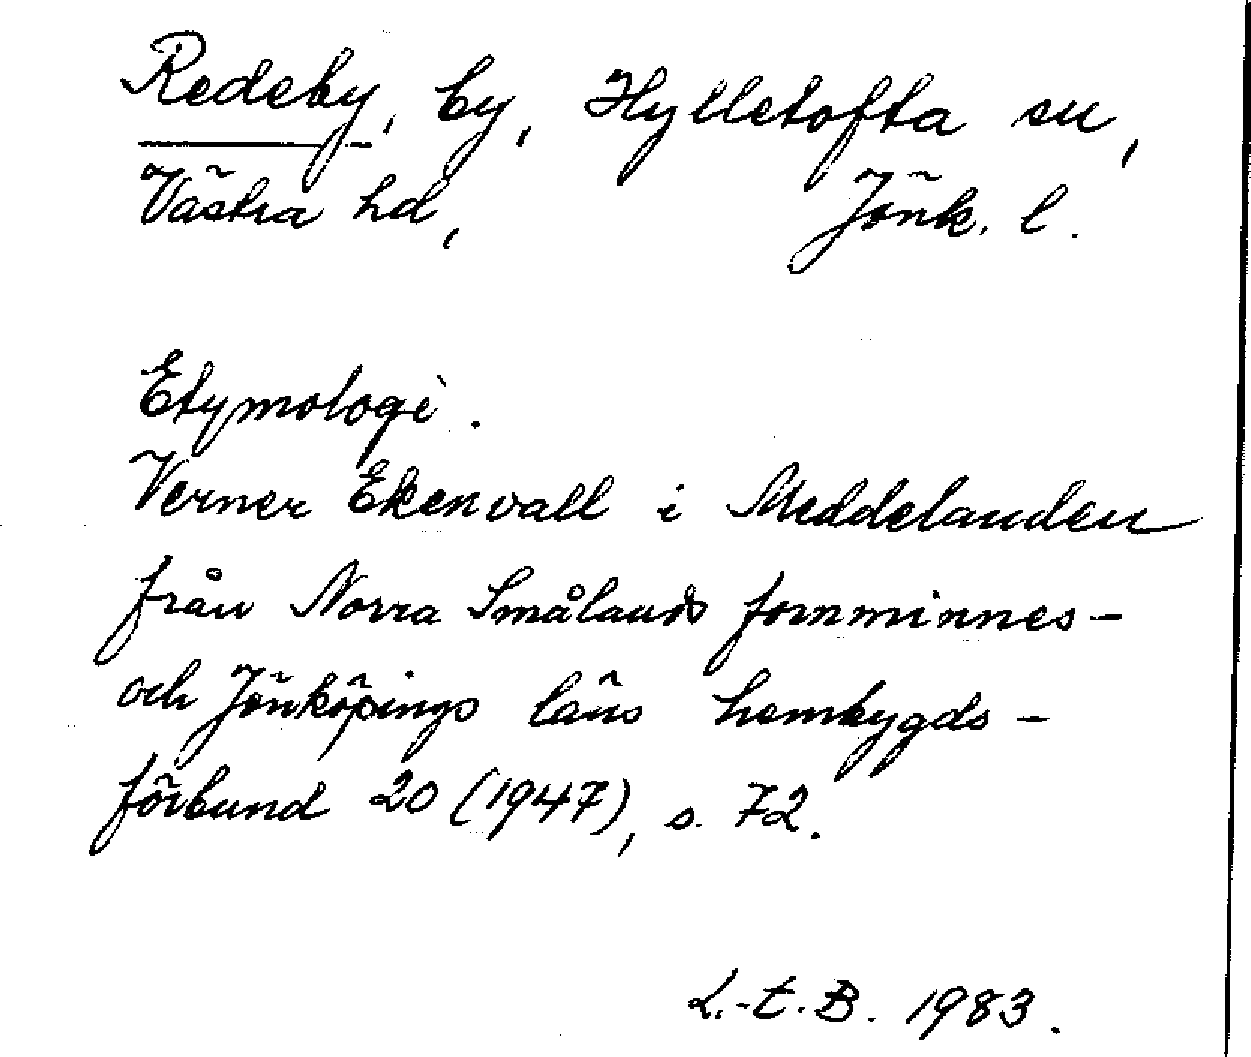 Redeby, by, Hylletofta sn,
Västra hd, Jönk. l.
Etymologi.
Verner Ekenvall i Meddelanden
från Norra Smålands fornminnes-
och Jönköpings läns hembygds-
förbund 20 (1947), s. 72.
L.-E.B. 1983.